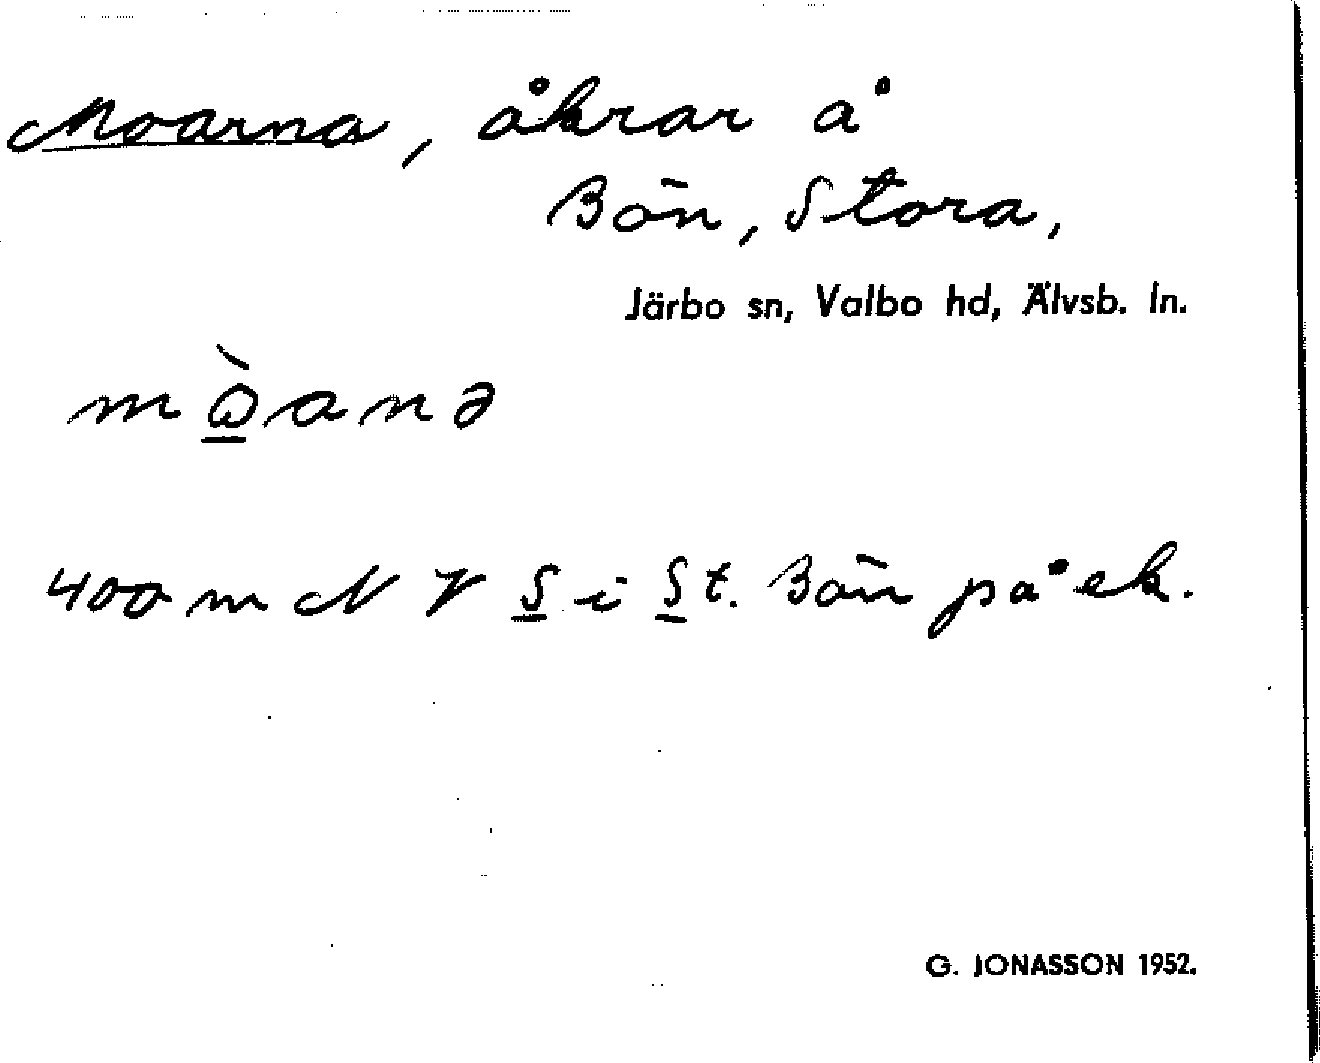 Moarna, åkrar å
Bön, Stora,
Järbo sn, Valbo hd, Älvsb. ln.
400 m NV S i St. Bön på ek.
G. JONASSON 1952.